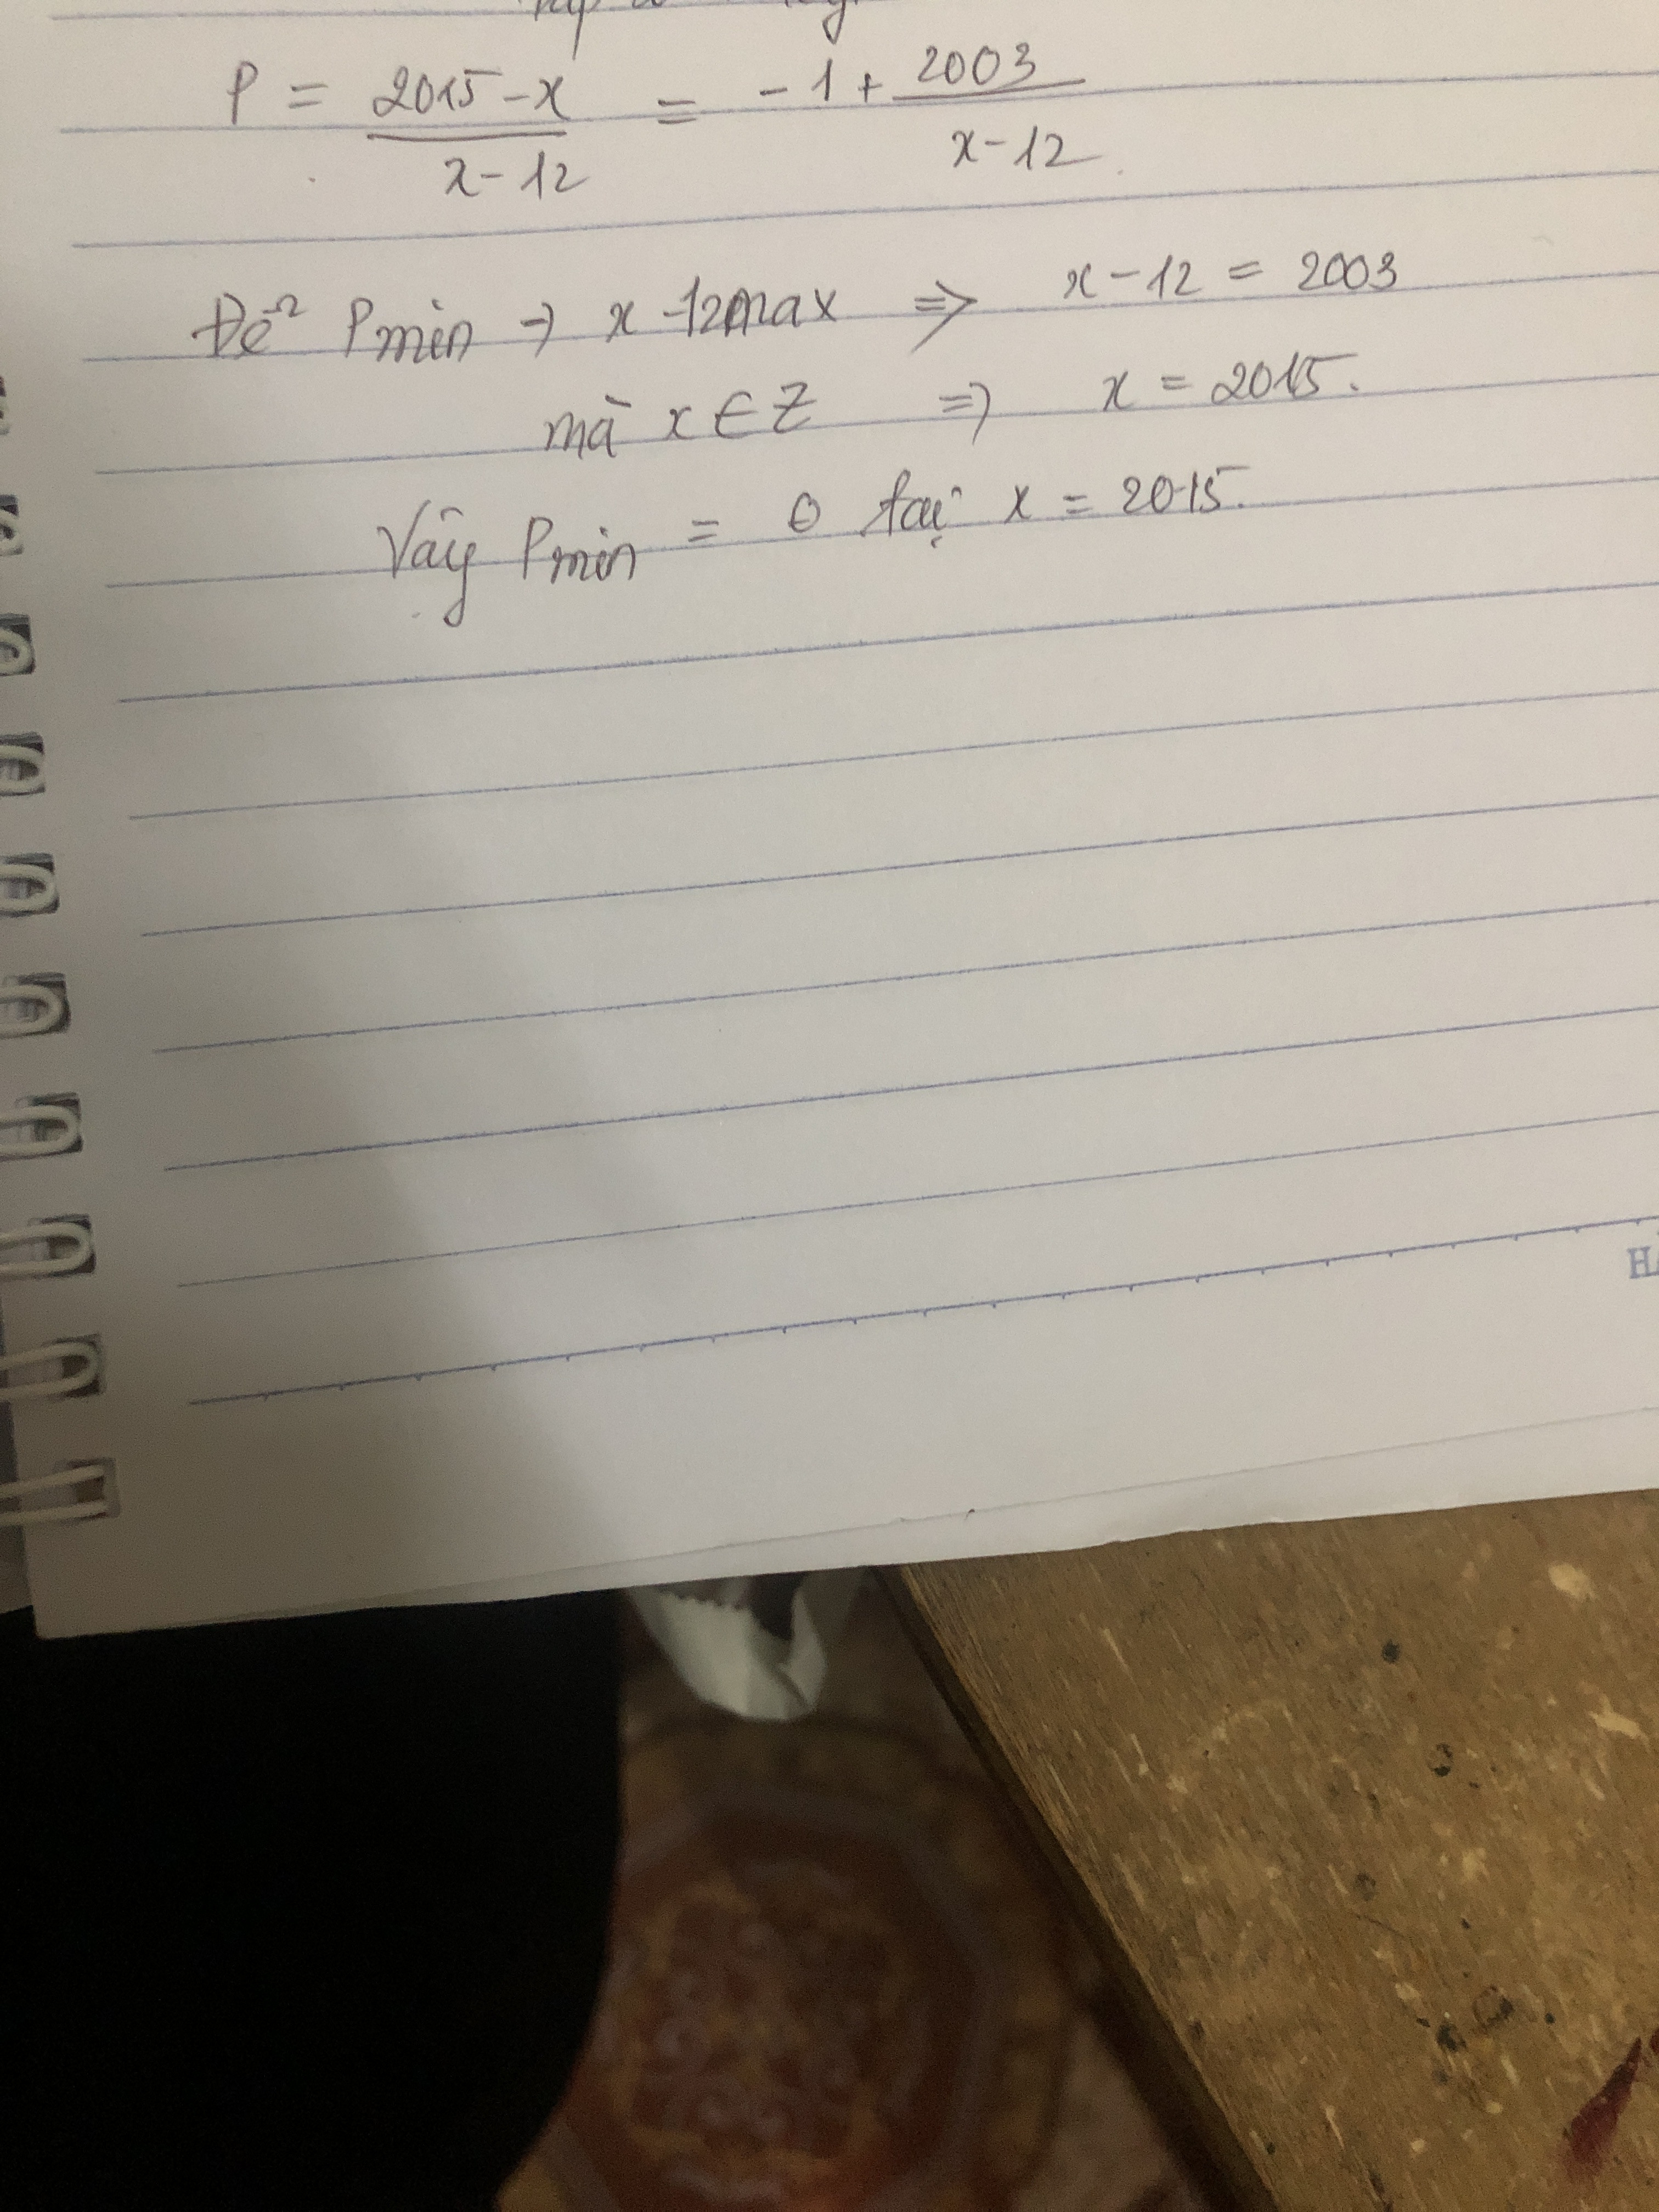 P = 2015 - x / x - 12 = - 1 + 2003 / x - 12
Để Pmin → x - 12 max ⇒ x - 12 = 2003
mà x ∈ Z ⇒ x = 2015.
Vậy Pmin = 0 tại x = 2015.